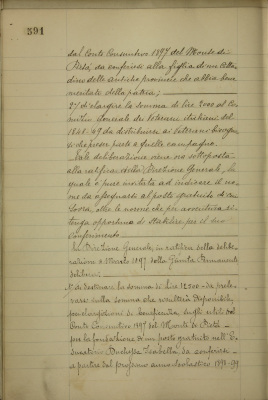 591
dal Conto Consuntivo 1897 del Monte di
Pietà, da conferirsi alla figlia di un citta-
dino delle antiche provincie che abbia bene
meritato della patria;
2º di elargire la somma di Lire 2000 al Co-
mitato Torinese dei veterani
1848-49 da distribuirsi ai veterani bisogno-
si che presero parte a quelle campagne.
Tale deliberazione viene ora sottoposta
alla ratifica della Direzione Generale, la
quale è pure invitata ad indicare il no-
me da assegnarsi al posto gratuito di cui
sovra, oltre le norme che più avvedutamente
tenga opportuno di stabilire per il suo
conferimento.
La Direzione Generale, in ratifica della delibe-
razione 2 Marzo 1897 della Giunta Permanente
delibera:
1º di destinare la somma di Lire 12.000 da prele-
varsi sulla somma che risulterà disponibile,
per elargizioni di beneficenza, sugli utili del
Conto Consuntivo 1897 del Monte di Pietà
per la fondazione di un posto gratuito nell'E-
ducatorio Duchessa Isabella da conferirsi
a partire dal prossimo anno scolastico 1898-99